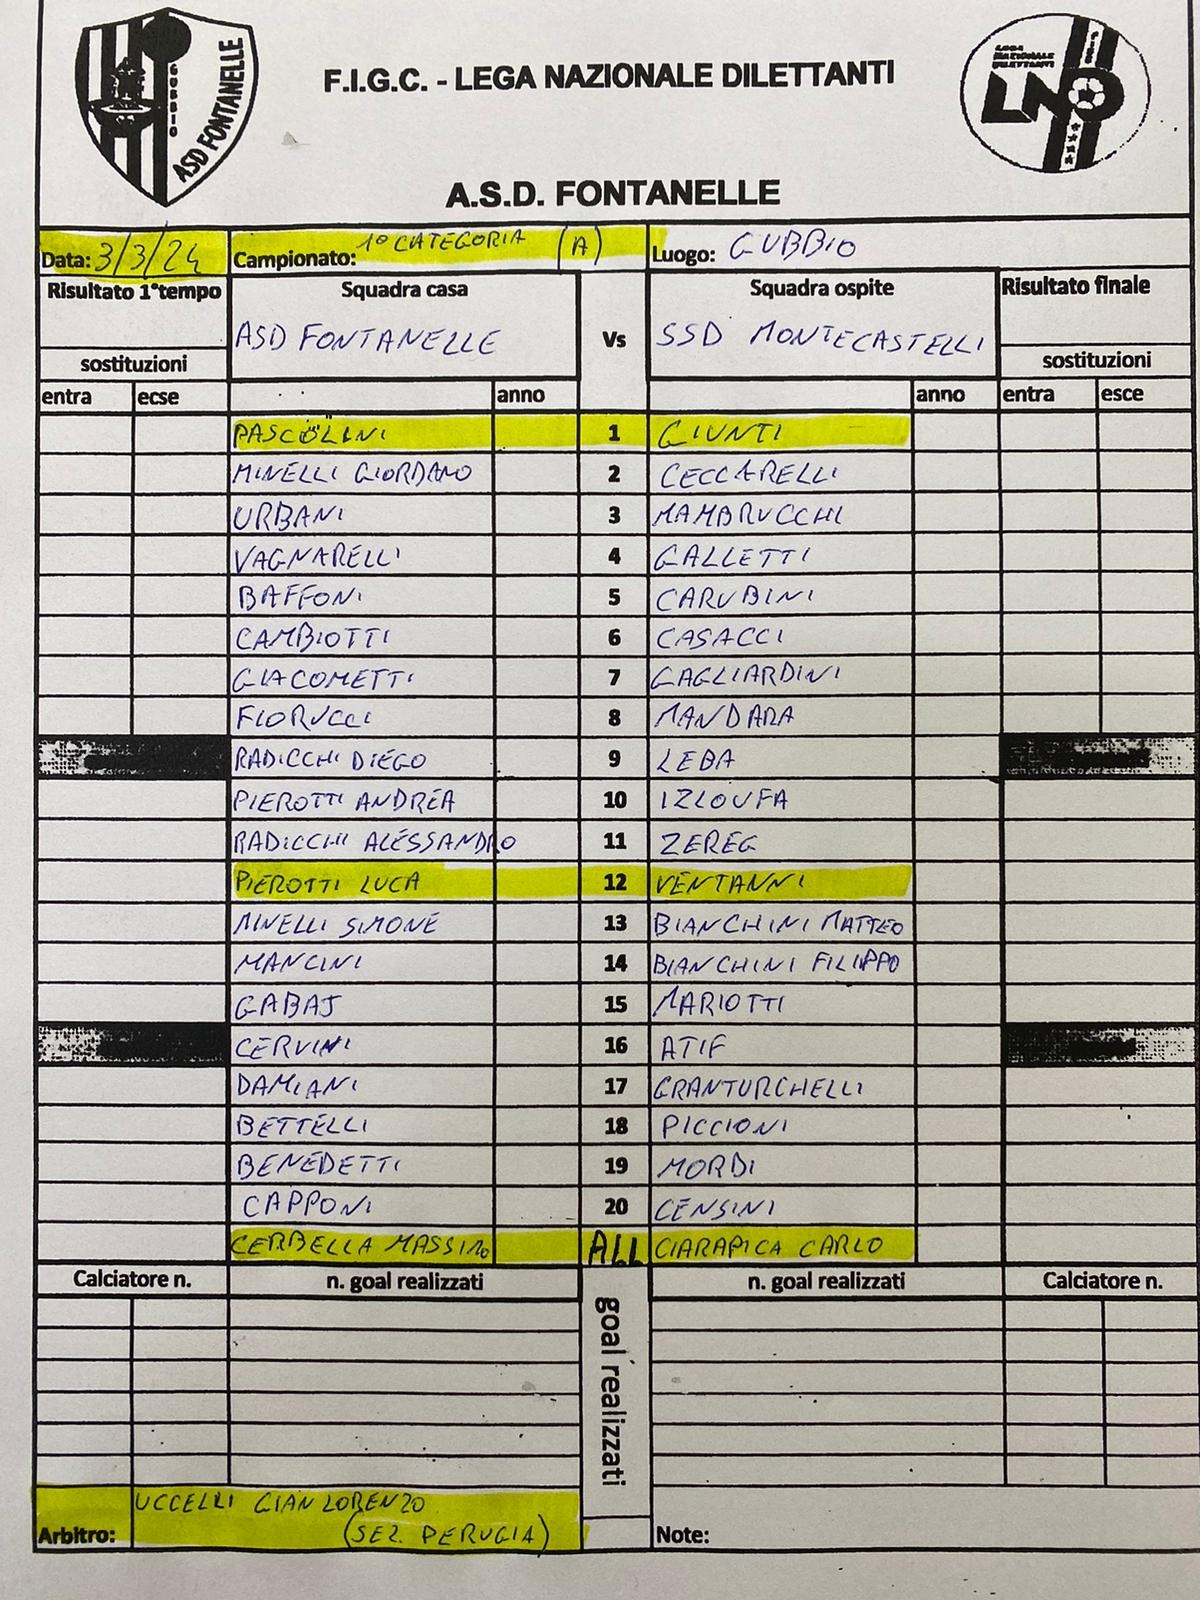 GUBBIO
ASD FONTANELLE
F.I.G.C. - LEGA NAZIONALE DILETTANTI
LEGA NAZIONALE DILETTANTI
LND
A.S.D. FONTANELLE
Data: 3/3/24 Campionato: 1° CATEGORIA (A) Luogo: GUBBIO
Risultato 1°tempo Squadra casa Squadra ospite Risultato finale
ASD FONTANELLE Vs SSD MONTECASTELLI
sostituzioni sostituzioni
entra ecse anno anno entra esce
PASCOLINI 1 GIUNTI
MINELLI GIORDANO 2 CECCARELLI
URBANI 3 MAMBRUCCHI
VAGNARELLI 4 GALLETTI
BAFFONI 5 CARUBINI
CAMBIOTTI 6 CASACCI
GIACOMETTI 7 GAGLIARDINI
FIORUCCI 8 MANDARA
RADICCHI DIEGO 9 LEBA
PIEROTTI ANDREA 10 IZLOUFA
RADICCHI ALESSANDRO 11 ZEREG
PIEROTTI LUCA 12 VENTANNI
MINELLI SIMONE 13 BIANCHINI MATTEO
MANCINI 14 BIANCHINI FILIPPO
GABAJ 15 MARIOTTI
CERVINI 16 ATIF
DAMIANI 17 GRANTURCHELLI
BETTELLI 18 PICCIONI
BENEDETTI 19 MORDI
CAPPONI 20 CENSINI
CERBELLA MASSIMO ALL CIARAPICA CARLO
Calciatore n. n. goal realizzati n. goal realizzati Calciatore n.
goal realizzati
UCCELLI GIANLORENZO
Arbitro: (SEZ. PERUGIA) Note: